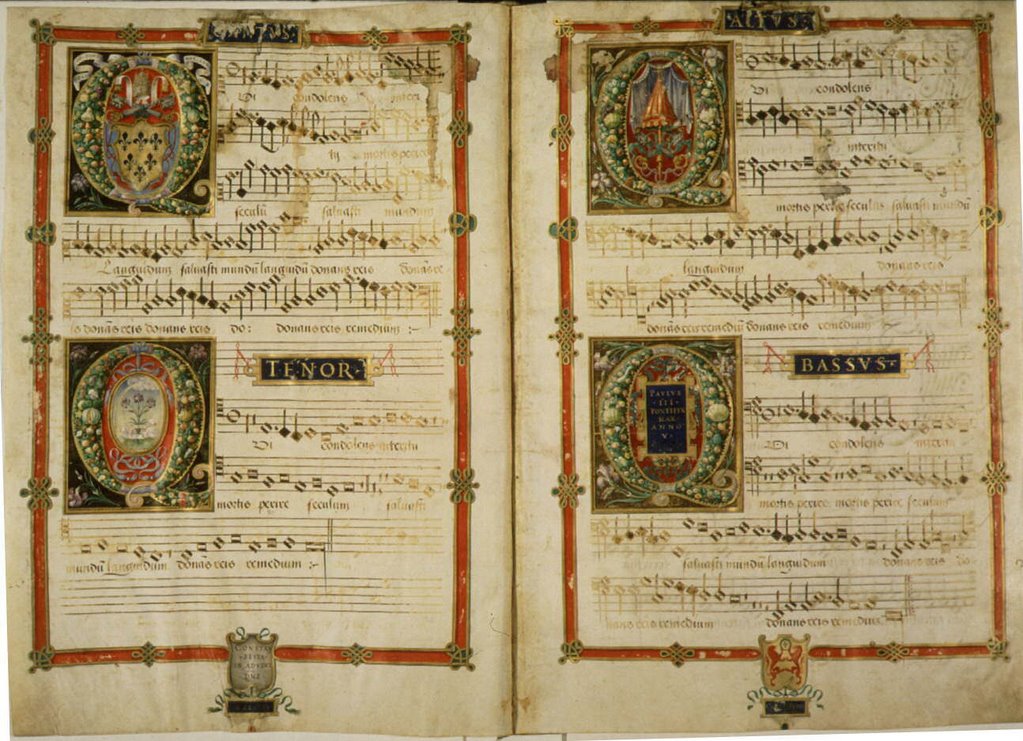 CANTVS
Qui condolens interi
tu mortis perire
seculū saluasti mundum
Languidum saluasti mundū languidū donans reis donās re
is donās reis donans reis do: donans reis remedium :~
TENOR
Qui condolens interitu
mortis perire seculum saluasti
mundū languidum donās reis remedium :~
ALTVS
Qui condolens
interitu
mortis perire seculū saluasti mundū
languidum donans reis
donans reis remediū donans reis remedium
PAVLVS
III
PONTIFEX
MAX
ANNO
V
BASSVS
Qui condolens interitu
mortis perire mortis perire seculum
saluasti mundū languidum donans reis do
nans reis remedium donans reis remedium